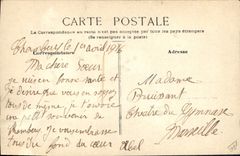 CARTE POSTALE
La Correspondance au recto n'est pas acceptée par tous les pays étrangers
(Se renseigner à la poste)
Correspondance
Adresse
Chambéry le 1er avril 1916
Ma chère Sœur
je suis en bonne santé et
je désire que vous en
tous de même, je t'envoie
un petit souvenir de
Chambéry je vous embrasse
tous du fond du cœur Abel
Madame
Puissant
Théâtre du Gymnase
Marseille